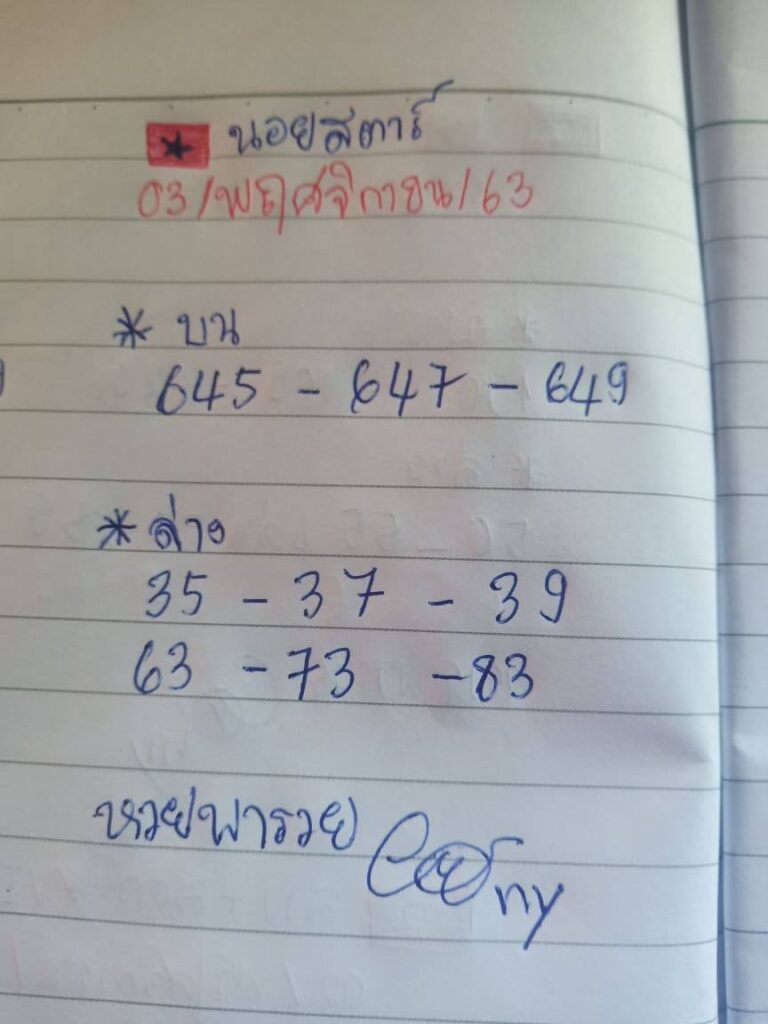 ★ นอยสตาร์
03/พฤศจิกายน/63
* บน
645 - 647 - 649
* ล่าง
35 - 37 - 39
63 - 73 - 83
หวยพารวย